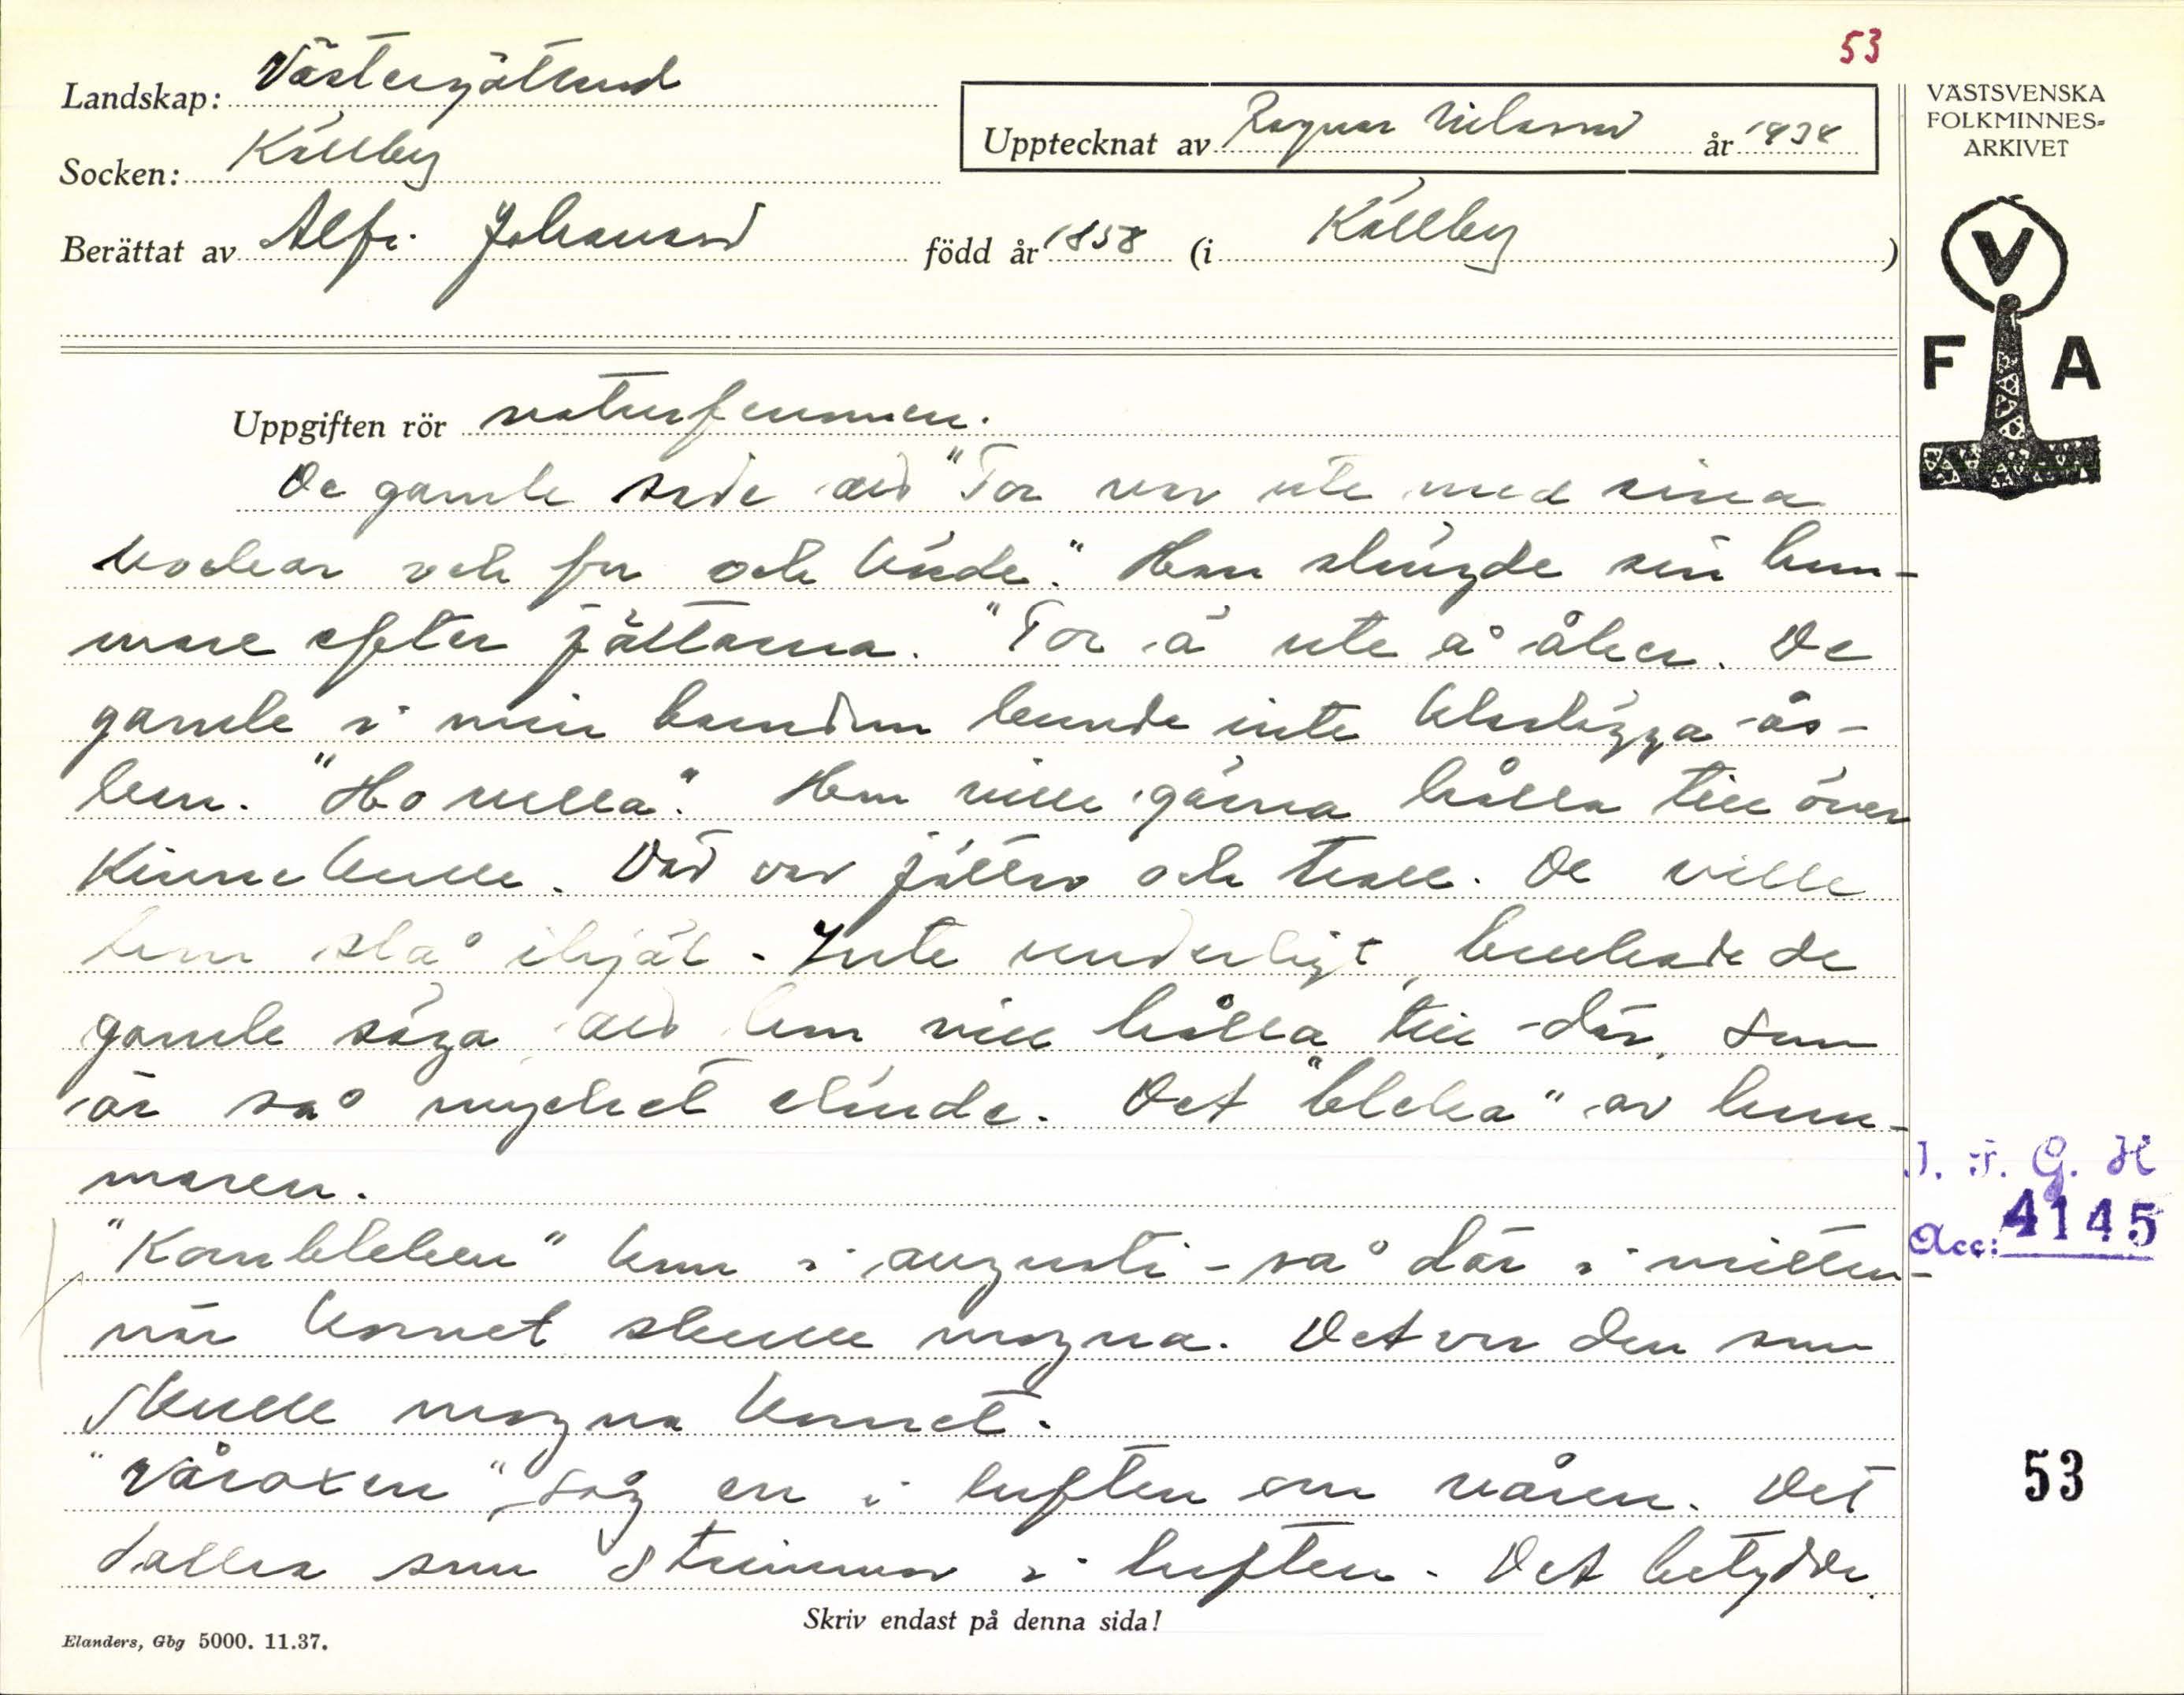 53
Landskap: Västergötland
Upptecknat av Ragnar Nilsson år 1938
Socken: Källby
Berättat av Alfr. Johansson född år 1858 (i Källby)
VÄSTSVENSKA
FOLKMINNES-
ARKIVET
V
F A
Uppgiften rör naturfenomen.
De gamle sade att "Tor var ute med sina
bockar och for och körde." Han slängde sin ham-
mare efter jättarna. "Tor ä ute å åker. De
gamle i min barndom kunde inte säga ås-
kan. "Ho mulla". Han ville gärna hålla till över
Kinnekulle. Där var jättar och troll. De ville
han slå ihjäl. Inte underligt, brukade de
gamle säga att han vill hålla till där, som
är så mycket elände. Det "bleka" av ham-
maren.
"Kornbleken" kom i augusti - så där i mitten -
när kornet skulle mogna. Det var den som
skulle mogna kornet.
"Våroxen" såg en i luften om våren. Det
dallra som strimmor i luften. Det betydde
I. F. G. H
Acc: 4145
53
Skriv endast på denna sida!
Elanders, Gbg 5000. 11.37.